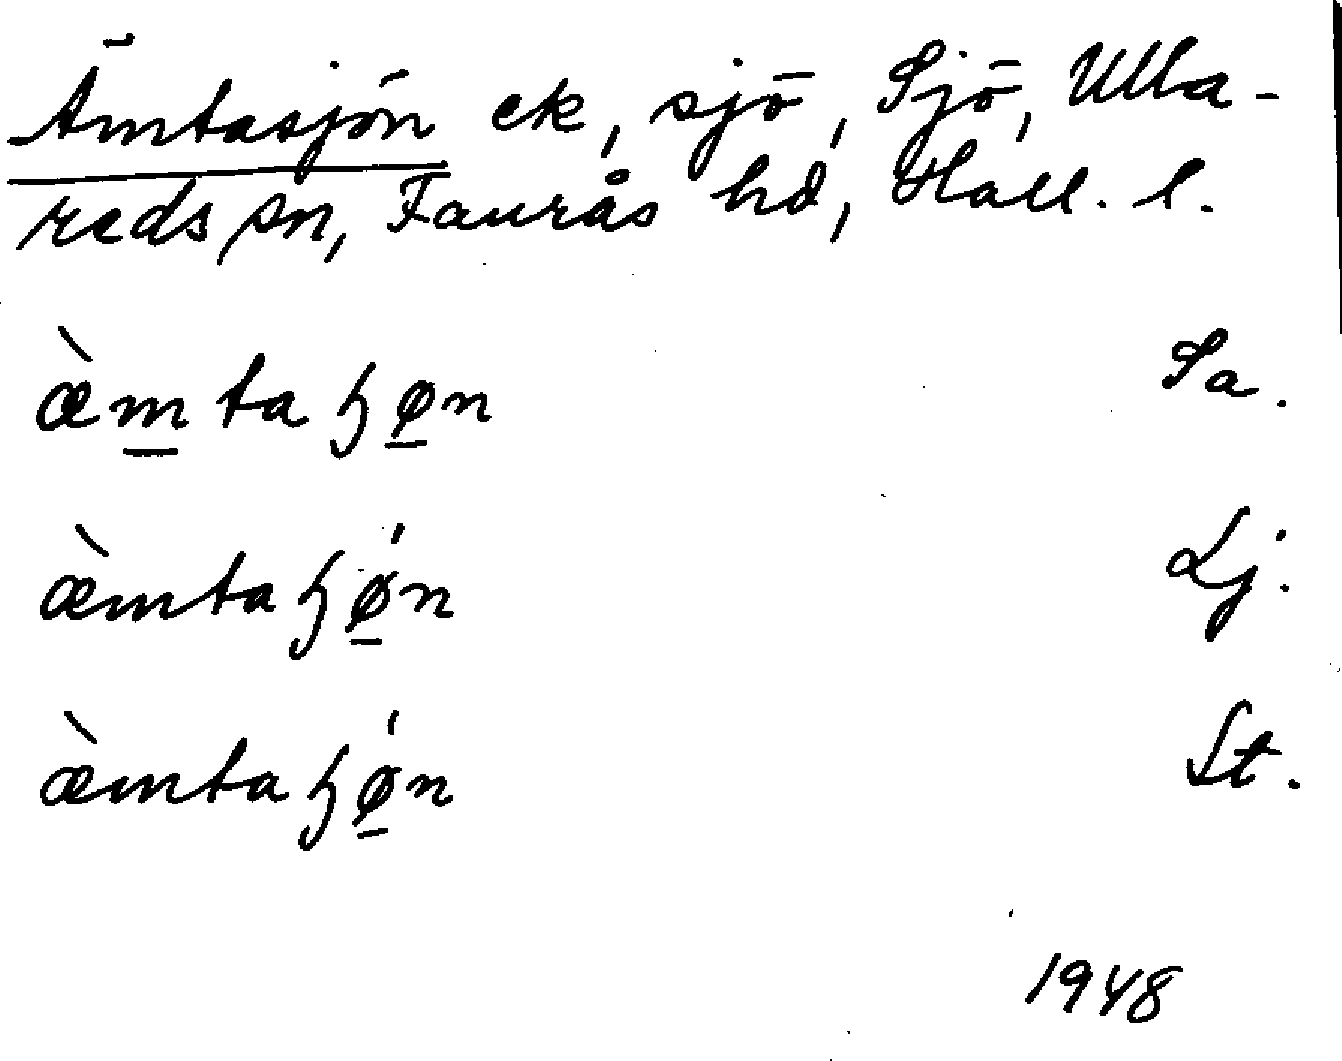 Ämtasjön ek, sjö, Sjö, Ulla-
reds sn, Faurås hd, Hall. l.
æ̀m̲taɧø̲n Sa.
æ̀mtaɧǿ̲n Lj.
æ̀mtaɧǿ̲n St.
1948